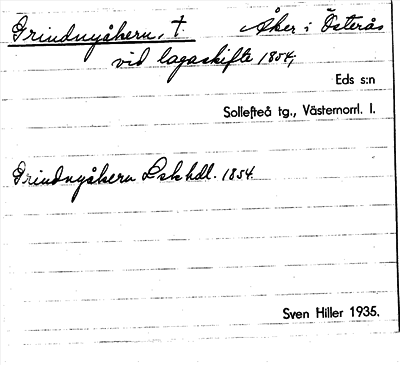 Grindnyåkern, † Åker i Österås
vid lagaskifte 1854,
Eds s:n
Sollefteå tg., Västernorrl. l.
Grindnyåkern Lskhdl. 1854
Sven Hiller 1935.